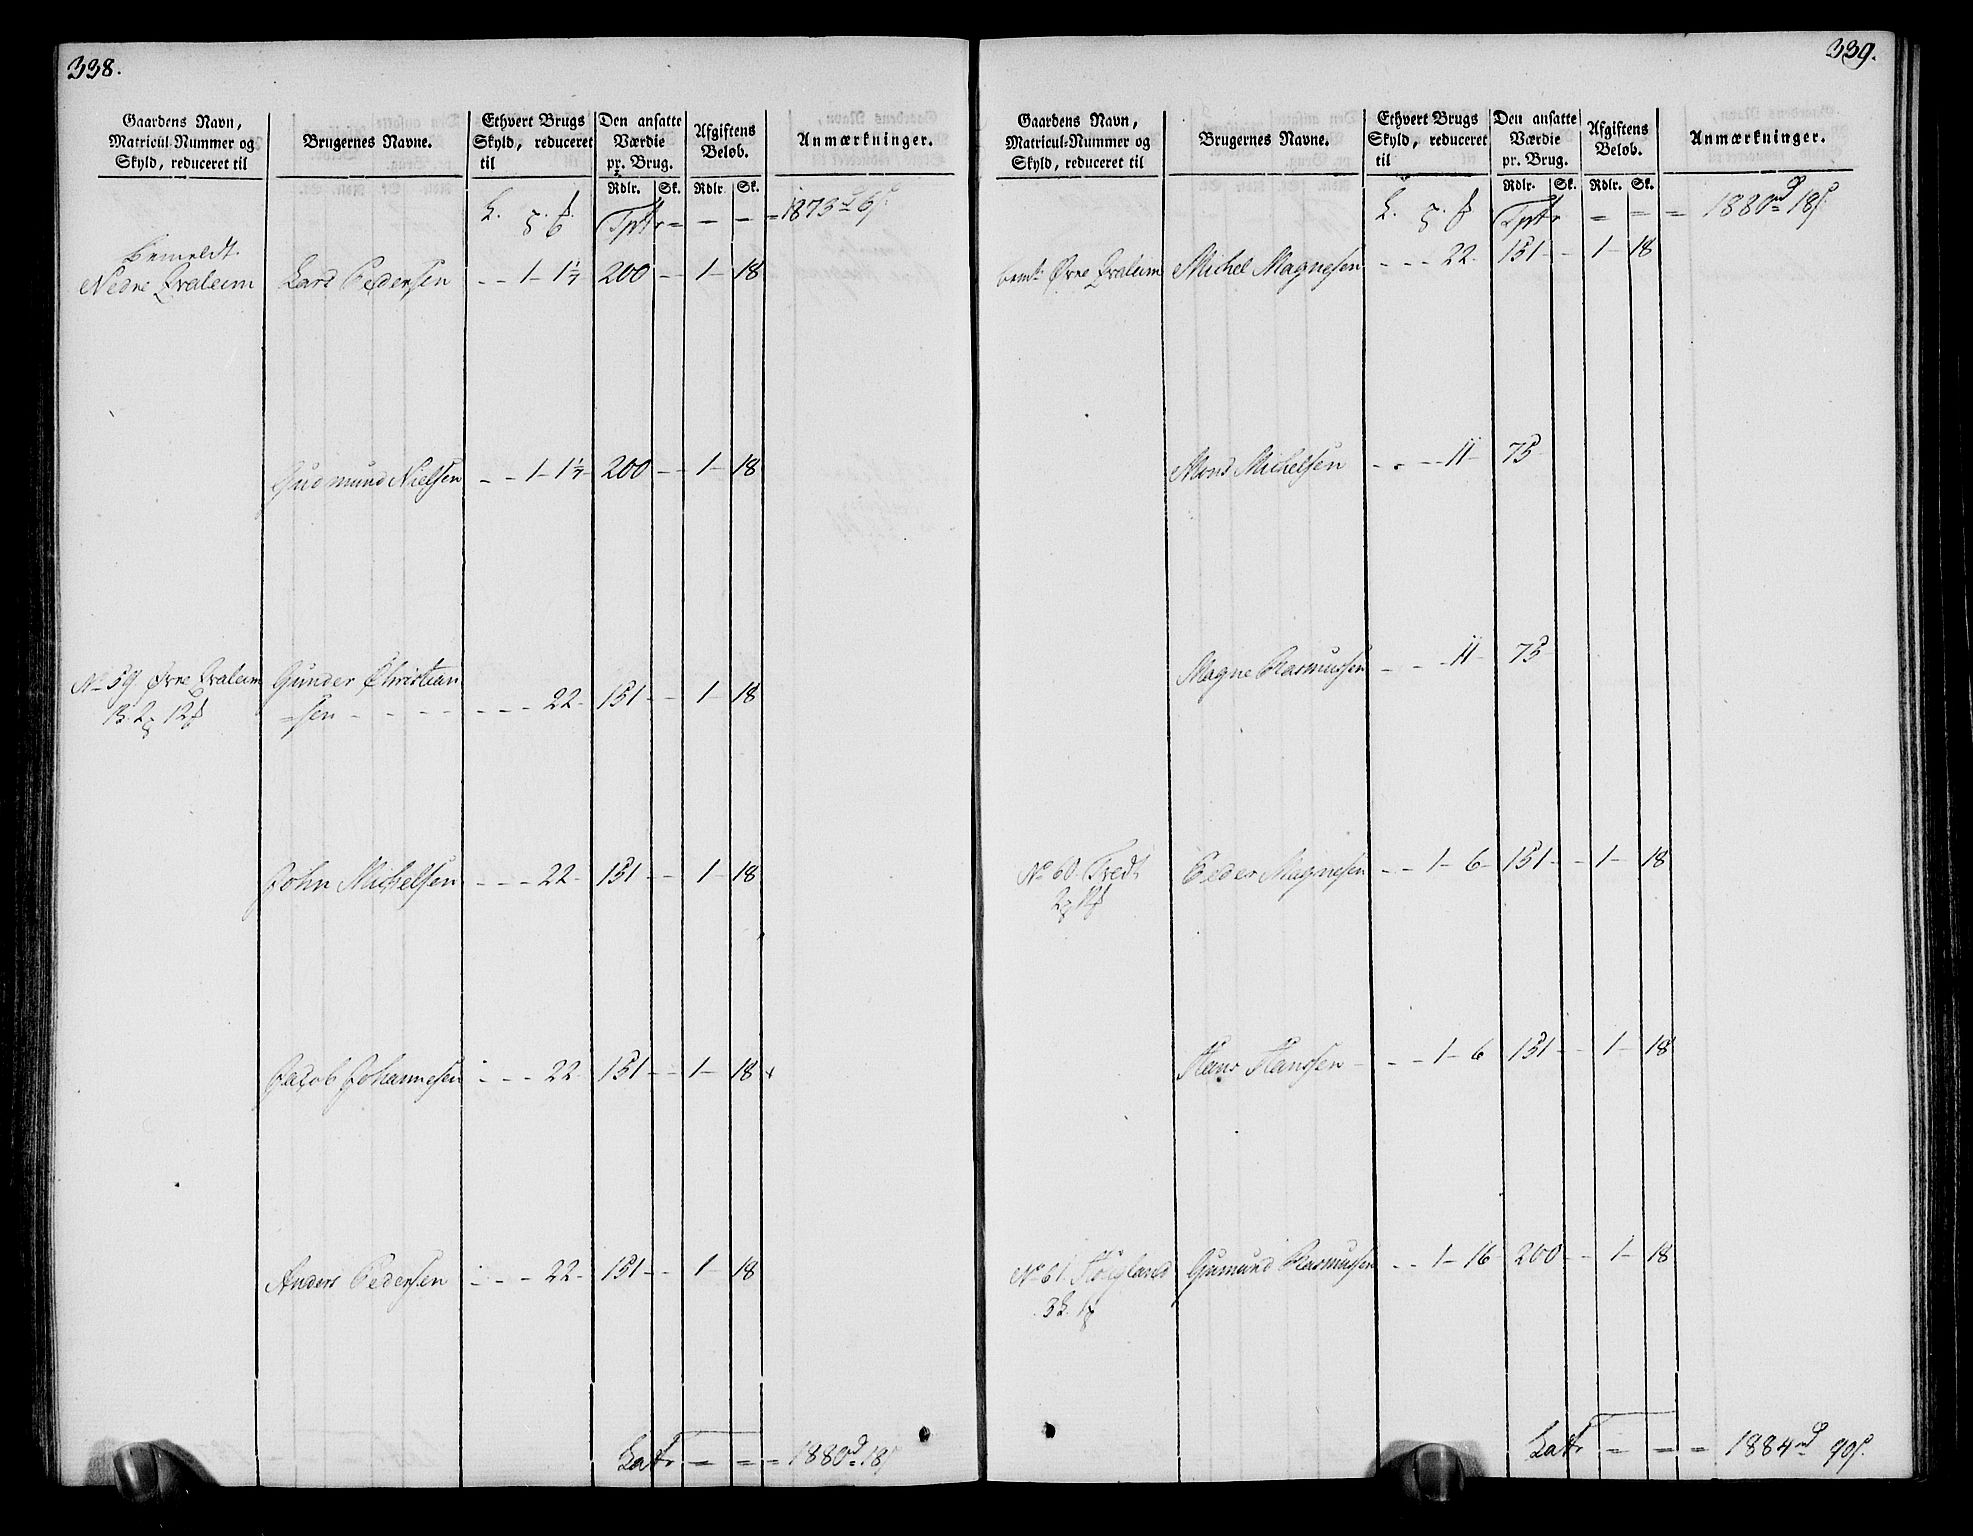 338.
Gaardens Navn, Matricul-Nummer og Skyld, reduceret til
Brugernes Navne.
Ethvert Brugs Skyld, reduceret til
Den ansatte Værdie pr. Brug.
Afgiftens Beløb.
Anmærkninger.
Rdlr. Sk. Rdlr. Sk.
Tptr = - - = 1873 6
bemeldt.
Nedre Qvaleim Lars Pedersen - - 1 - 1 1/7 200 - - 1 - 18
Gudmund Nielsen - - 1 - 1 1/7 - 200 - - 1 - 18
No 59 Øvre Qvaleim Gunder Christian
=sen - - - - - - - 22 - 151 - - 1 - 18
John Michelsen - - - 22 - 151 - - 1 - 18
Jacob Johannesen - - - 22 - 151 - - 1 - 18
Anders Pedersen - - - 22 - 151 - - 1 - 18
Latr = = = 1880 18
339.
Gaardens Navn, Matricul-Nummer og Skyld, reduceret til
Brugernes Navne.
Ethvert Brugs Skyld, reduceret til
Den ansatte Værdie pr. Brug.
Afgiftens Beløb.
Anmærkninger.
Rdlr. Sk. Rdlr. Sk.
Tptr = = = 1880 18
bemt Øvre Qvaleim Michel Magnesen - - - 22 - 151 - - 1 - 18
Mons Michelsen - - - 11 - 75
Magne Rasmussen - - - 11 - 75
No 60 Tvedt Peder Magnesen - - 1 - 6 - 151 - - 1 - 18
Hans Hanssen - - - 1 - 6 151 - - 1 - 18
No 61 Hougland Gumund Rasmussen - - 1 - 16 200 - - 1 - 18
Latr = = = 1884 90